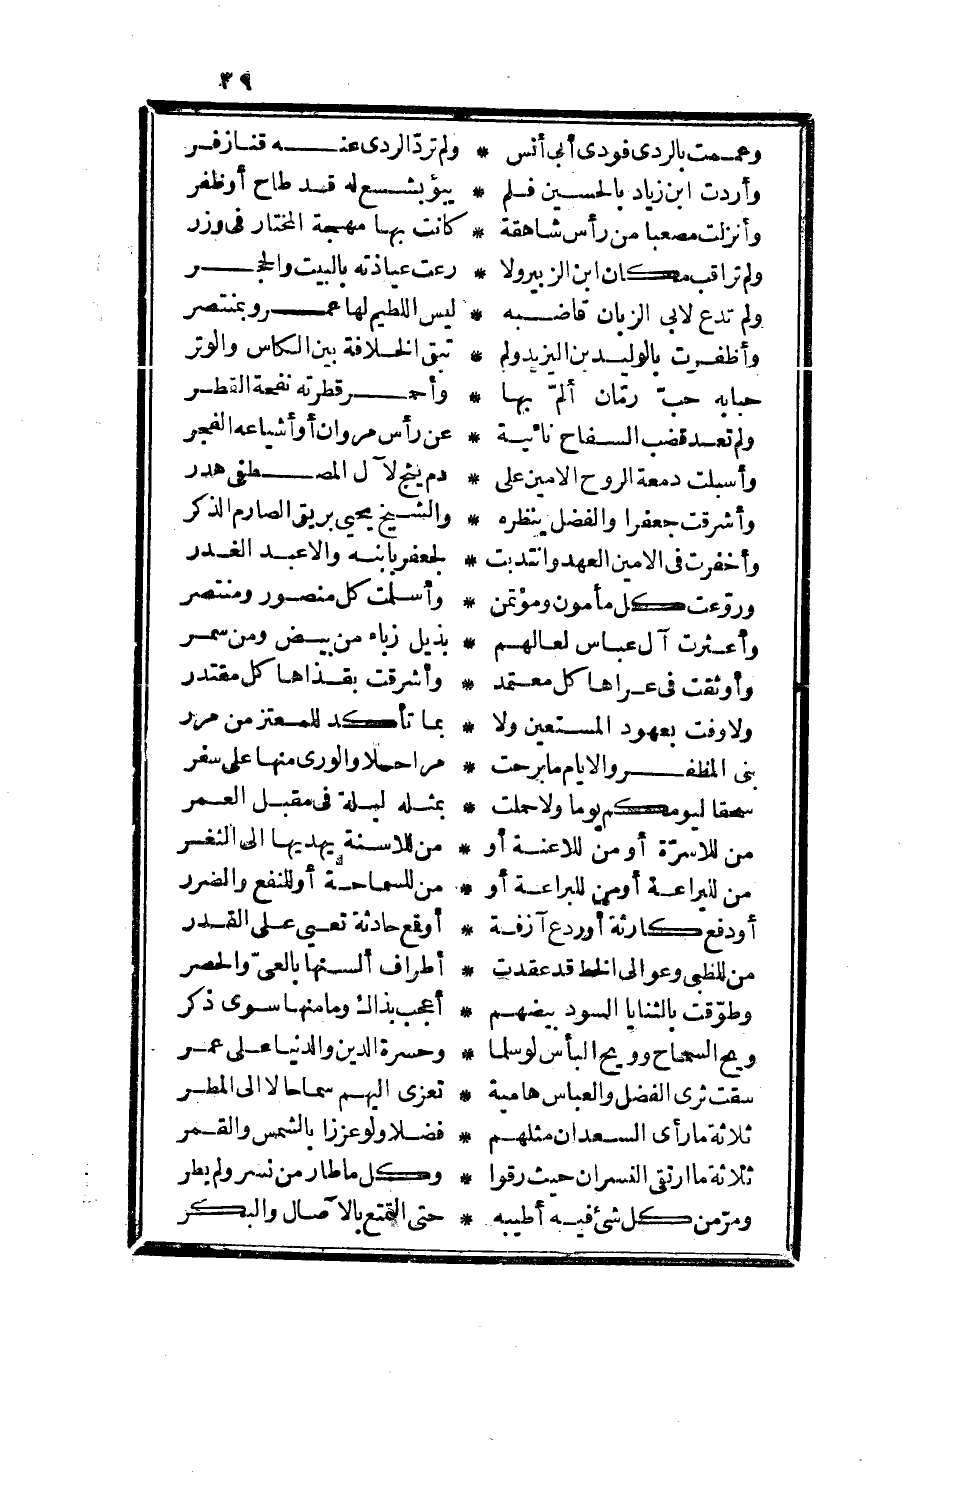 ٣٩
وعممت بالردى فودى أبى أنس * ولم تردّ الردى عنه قنا زفر
وأردت ابن زياد بالحسين فلم * يبؤ بشسع له قد طاح أو ظفر
وأنزلت مصعبا من رأس شاهقة * كانت بها مهجة المختار فى وزر
ولم تراقب مكان ابن الزبير ولا * رعت عياذته بالبيت والحجر
ولم تدع لابى الزبان قاضبه * ليس اللطيم لها عمرو بمنتصر
وأظفرت بالوليد بن اليزيد ولم * تبق الخلافة بين الكاس والوتر
حبابه حبّ رمّان ألمّ بها * وأحمر قطرته نفحة القطر
ولم تعد قضب السفاح نائية * عن رأس مروان أو أشياعه الفجر
وأسبلت دمعة الروح الامين على * دم يثج لآل المصطفى هدر
وأشرقت جعفرا والفضل ينظره * والشيخ يحيى بريق الصارم الذكر
وأخفرت فى الامين العهد وانتدبت * لجعفر بابنه والاعبد الغدر
وروّعت كل مأمون ومؤتمن * وأسلمت كل منصور ومنتصر
وأعثرت آل عباس لعالهم * بذيل زباء من بيض ومن سمر
وأوثقت فى عراها كل معتمد * وأشرقت بقذاها كل مقتدر
ولا وفت بعهود المستعين ولا * بما تأكد للمعتز من مرر
بنى المظفر والايام ما برحت * مراحلا والورى منها على سفر
سحقا ليومكم يوما ولا حملت * بمثله ليلة فى مقبل العمر
من للاسرّة أو من للاعنة أو * من للاسنة يهديها الى الثغر
من لليراعة أو من للبراعة أو * من للسماحة أو للنفع والضرر
أو دفع كارثة أو ردع آزفة * أو قع حادثة تعيى على القدر
من للظبى وعوالى الخط قد عقدت * أطراف ألسنها بالعىّ والحصر
وطوّقت بالثنايا السود بيضهم * أعجب بذاك وما منها سوى ذكر
ويح السماح وويح البأس لو سلما * وحسرة الدين والدنيا على عمر
سقت ثرى الفضل والعباس هامية * تعزى اليهم سماحا لا الى المطر
ثلاثة ما رأى السعدان مثلهم * فضلا ولو عززا بالشمس والقمر
ثلاثة ما ارتقى النسران حيث رقوا * وكل ما طار من نسر ولم يطر
ومرّ من كل شئ فيه أطيبه * حتى التمتع بالآصال والبكر